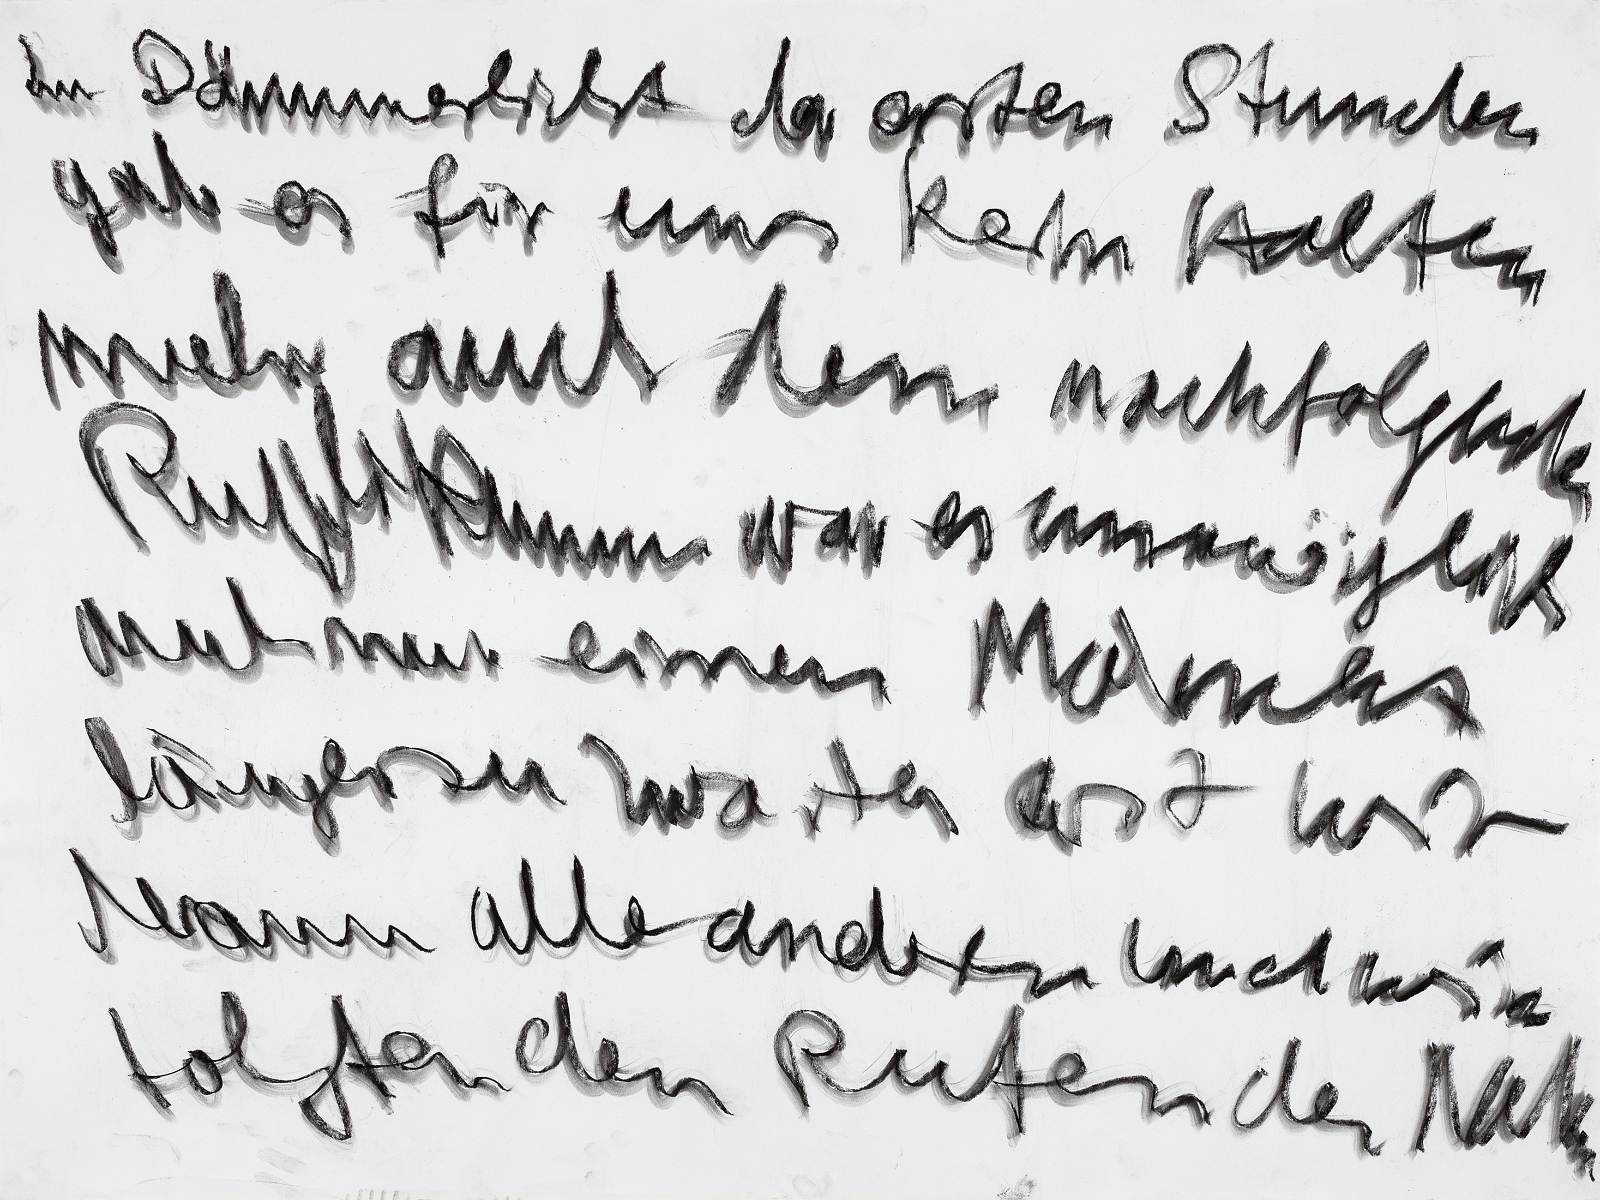 im Dämmerlicht der ersten Stunden
gab es für uns kein Halten
mehr auch dem nachfolgenden
war es unmöglich
auch nur einen
länger zu warten erst
alle anderen und wir
folgten den Rufen der